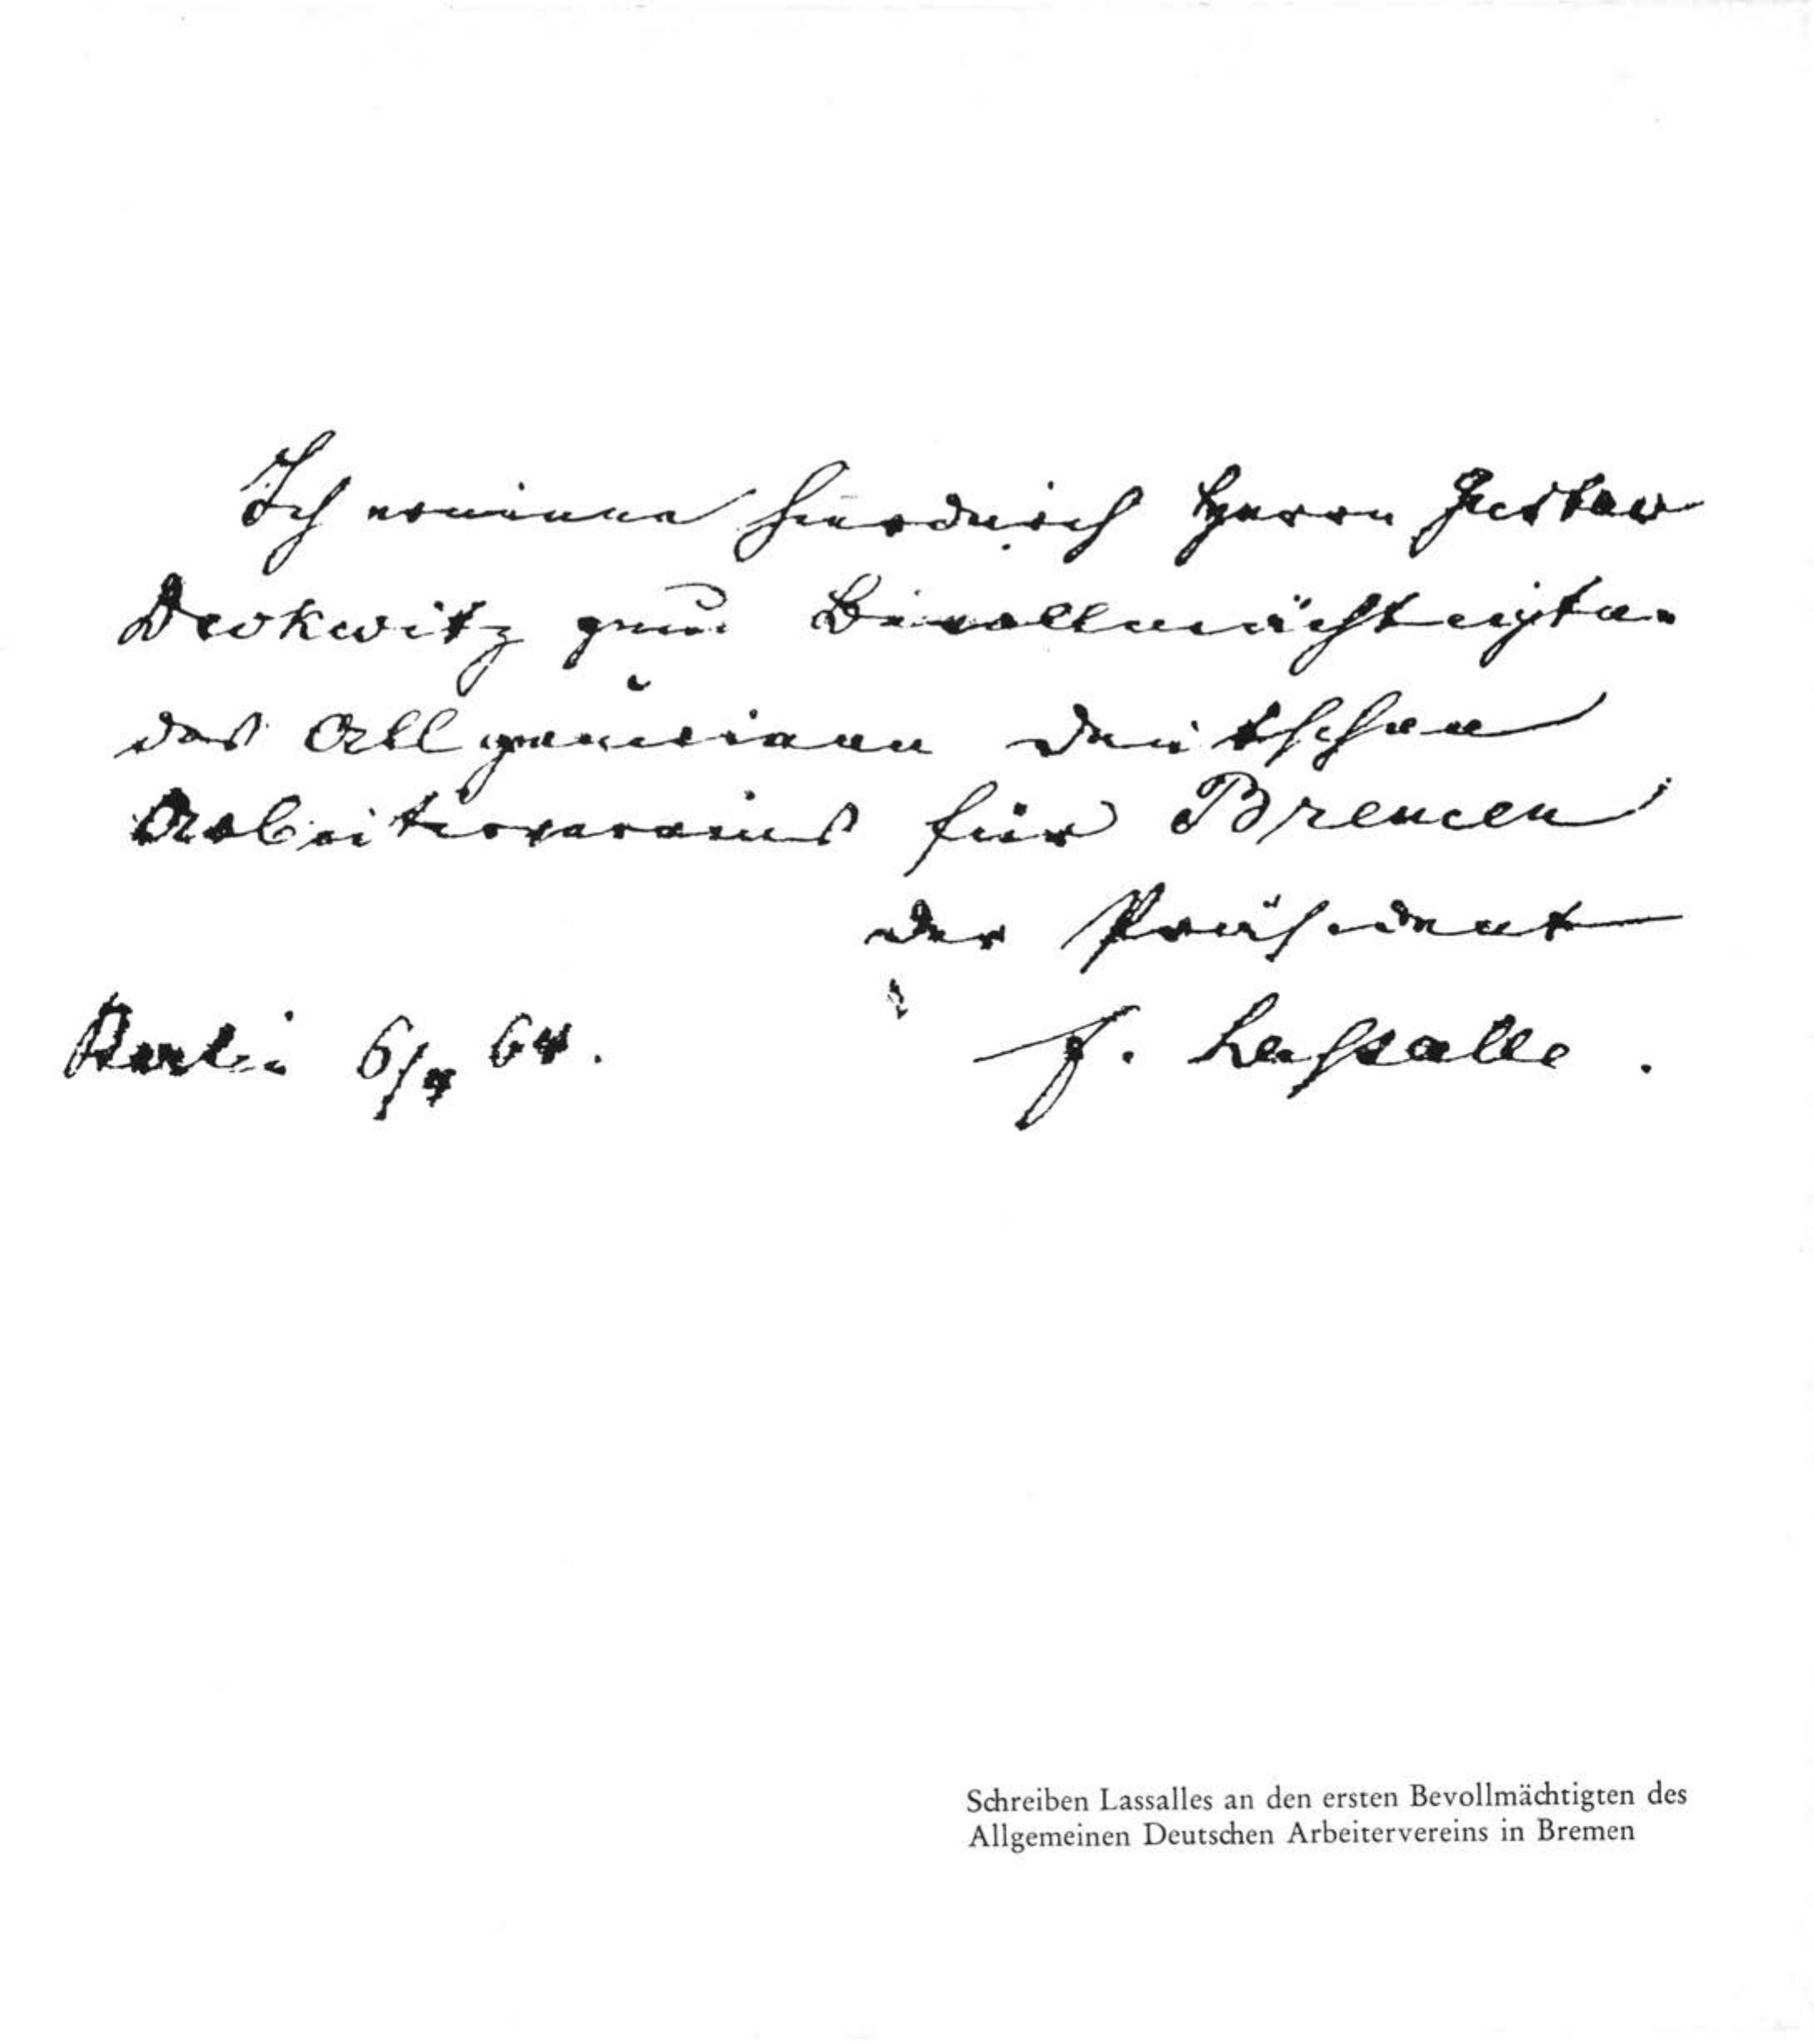 Ich ernenne hierdurch Herrn Gustav
Deckwitz zum Bevollmächtigten
des Allgemeinen Deutschen
Arbeitervereins für Bremen
der Präsident
Berlin 6/4 64.
F. Lassalle.
Schreiben Lassalles an den ersten Bevollmächtigten des
Allgemeinen Deutschen Arbeitervereins in Bremen